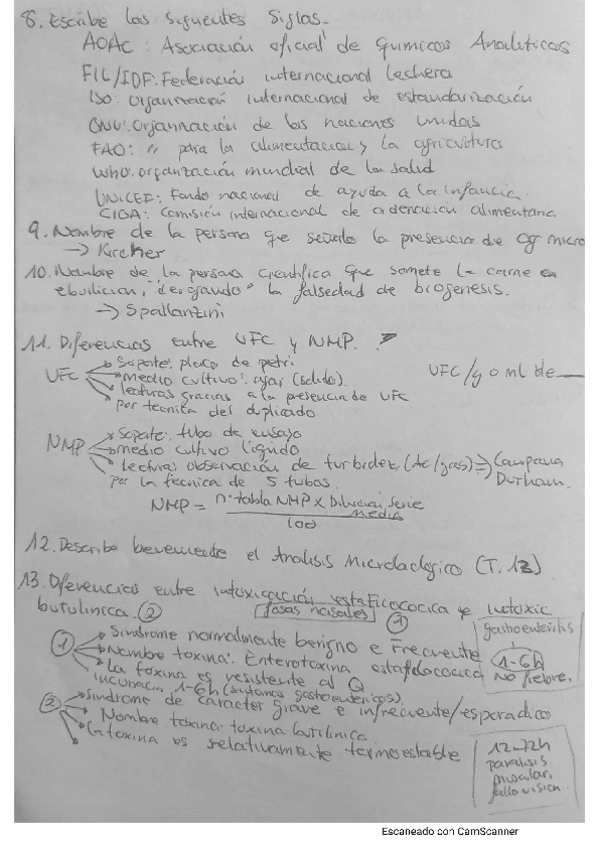 8. Escribe las siguientes Siglas.
AOAC: Asociación oficial de Químicos Analíticos
FIL/IDF: Federación internacional lechera
ISO: organización internacional de estandarización
ONU: organización de las naciones unidas
FAO: " para la alimentación y la agricultura
WHO: organización mundial de la salud
UNICEF: Fondo nacional de ayuda a la infancia.
CIOA: Comisión internacional de ordenación alimentaria
9. Nombre de la persona que señalo la presencia de og micro
→ Kircher
10. Nombre de la persona científica que somete la carne en
ebullición, "derogando" la falsedad de biogenesis.
→ Spallanzini
11. Diferencias entre UFC y NMP.
UFC
Soporte: placa de petri
medio cultivo: agar (solido).
lecturas gracias a la presencia de UFC
por tecnica del duplicado
UFC/g o ml de
NMP
Soporte: tubo de ensayo
medio cultivo liquido
Lectura: observación de turbidez (Ac/gas) ⇒ Campana
Durham.
por la tecnica de 5 tubos.
NMP = nº tabla NMP x Dilucion Serie
media
100
12. Describe bevemente el Analisis Microbiologico (T. 12)
13. Diferencias entre intoxicación estafilococica e intoxic
butulinica. ②
fosas nasales
①
① Sindrome normalmente benigno e Frecuente
Nombre toxina: Enterotoxina estafilococica
La toxina es resistente al Q
incubacion 1-6h (sintomas gastroentericos).
gastroenteritis
1-6h
No fiebre.
② Sindrome de caracter grave e infrecuente/esporadico
Nombre toxina: toxina butilinica.
La toxina es relativamente termoestable
12-72h
paralisis
muscular,
fallo vision.
Escaneado con CamScanner